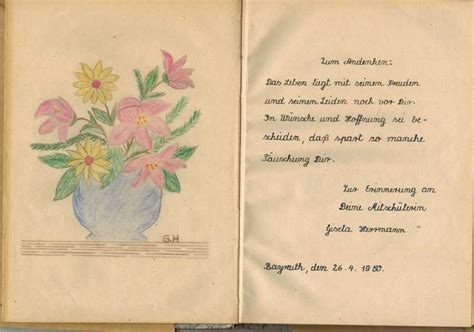 G H
Zum Andenken:
Das Leben liegt mit seinen Freuden
und seinen Leiden noch vor Dir.
In Wünsche und Hoffnung sei be-
scheiden, daß spart so manche
Täuschung Dir.
Zur Erinnerung an
Deine Mitschülerin
Gisela Herrmann
Bayreuth, den 26.4.1950.